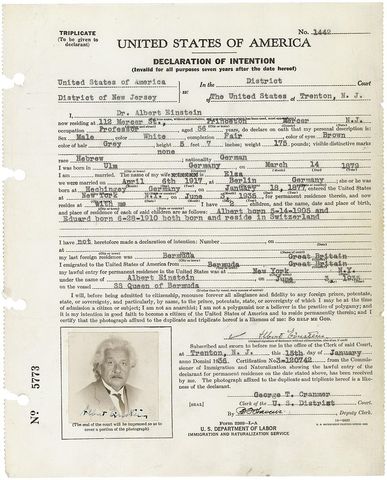 TRIPLICATE
(To be given to declarant)
No. 1442
UNITED STATES OF AMERICA
DECLARATION OF INTENTION
(Invalid for all purposes seven years after the date hereof)
United States of America
In the District Court
District of New Jersey
of The United States at Trenton, N. J.
Dr. Albert Einstein
now residing at 112 Mercer St., Princeton Mercer N.J.
occupation Professor aged 56 years, do declare on oath that my personal description is:
Sex Male color White complexion Fair color of eyes Brown
color of hair Grey height 5 feet 7 inches weight 175 pounds; visible distinctive marks
none
race Hebrew nationality German
I was born in Ulm Germany March 14 1879
I am married. The name of my wife is Elsa
we were married on April 6th 1917 at Berlin Germany she or he was
born at Hechingen Germany on January 18, 1877 entered the United States
at New York N.Y. on June 3, 1935 for permanent residence therein, and now
resides at With me I have 2 children, and the name, date and place of birth,
and place of residence of each of said children are as follows: Albert born 5-14-1905 and
Eduard born 6-28-1910 both born and reside in Switzerland
I have not heretofore made a declaration of intention: Number on
at
my last foreign residence was Bermuda Great Britain
I emigrated to the United States of America from Bermuda Great Britain
my lawful entry for permanent residence in the United States was at New York N.Y.
under the name of Albert Einstein on June 3, 1935
on the vessel SS Queen of Bermuda
I will, before being admitted to citizenship, renounce forever all allegiance and fidelity to any foreign prince, potentate,
state, or sovereignty, and particularly, by name, to the prince, potentate, state, or sovereignty of which I may be at the time
of admission a citizen or subject; I am not an anarchist; I am not a polygamist nor a believer in the practice of polygamy; and
it is my intention in good faith to become a citizen of the United States of America and to reside permanently therein; and I
certify that the photograph affixed to the duplicate and triplicate hereof is a likeness of me: So help me God.
Albert Einstein
Subscribed and sworn to before me in the office of the Clerk of said Court,
at Trenton, N. J. this 15th day of January
anno Domini 1936. Certification No. 3-120742 from the Commissioner
of Immigration and Naturalization showing the lawful entry of the
declarant for permanent residence on the date stated above, has been received
by me. The photograph affixed to the duplicate and triplicate hereof is a likeness
of the declarant.
George T. Cranmer
[SEAL] Clerk of the U. S. District Court.
By Deputy Clerk.
Form 2202-L-A
U. S. DEPARTMENT OF LABOR
IMMIGRATION AND NATURALIZATION SERVICE
Albert Einstein
No 5773